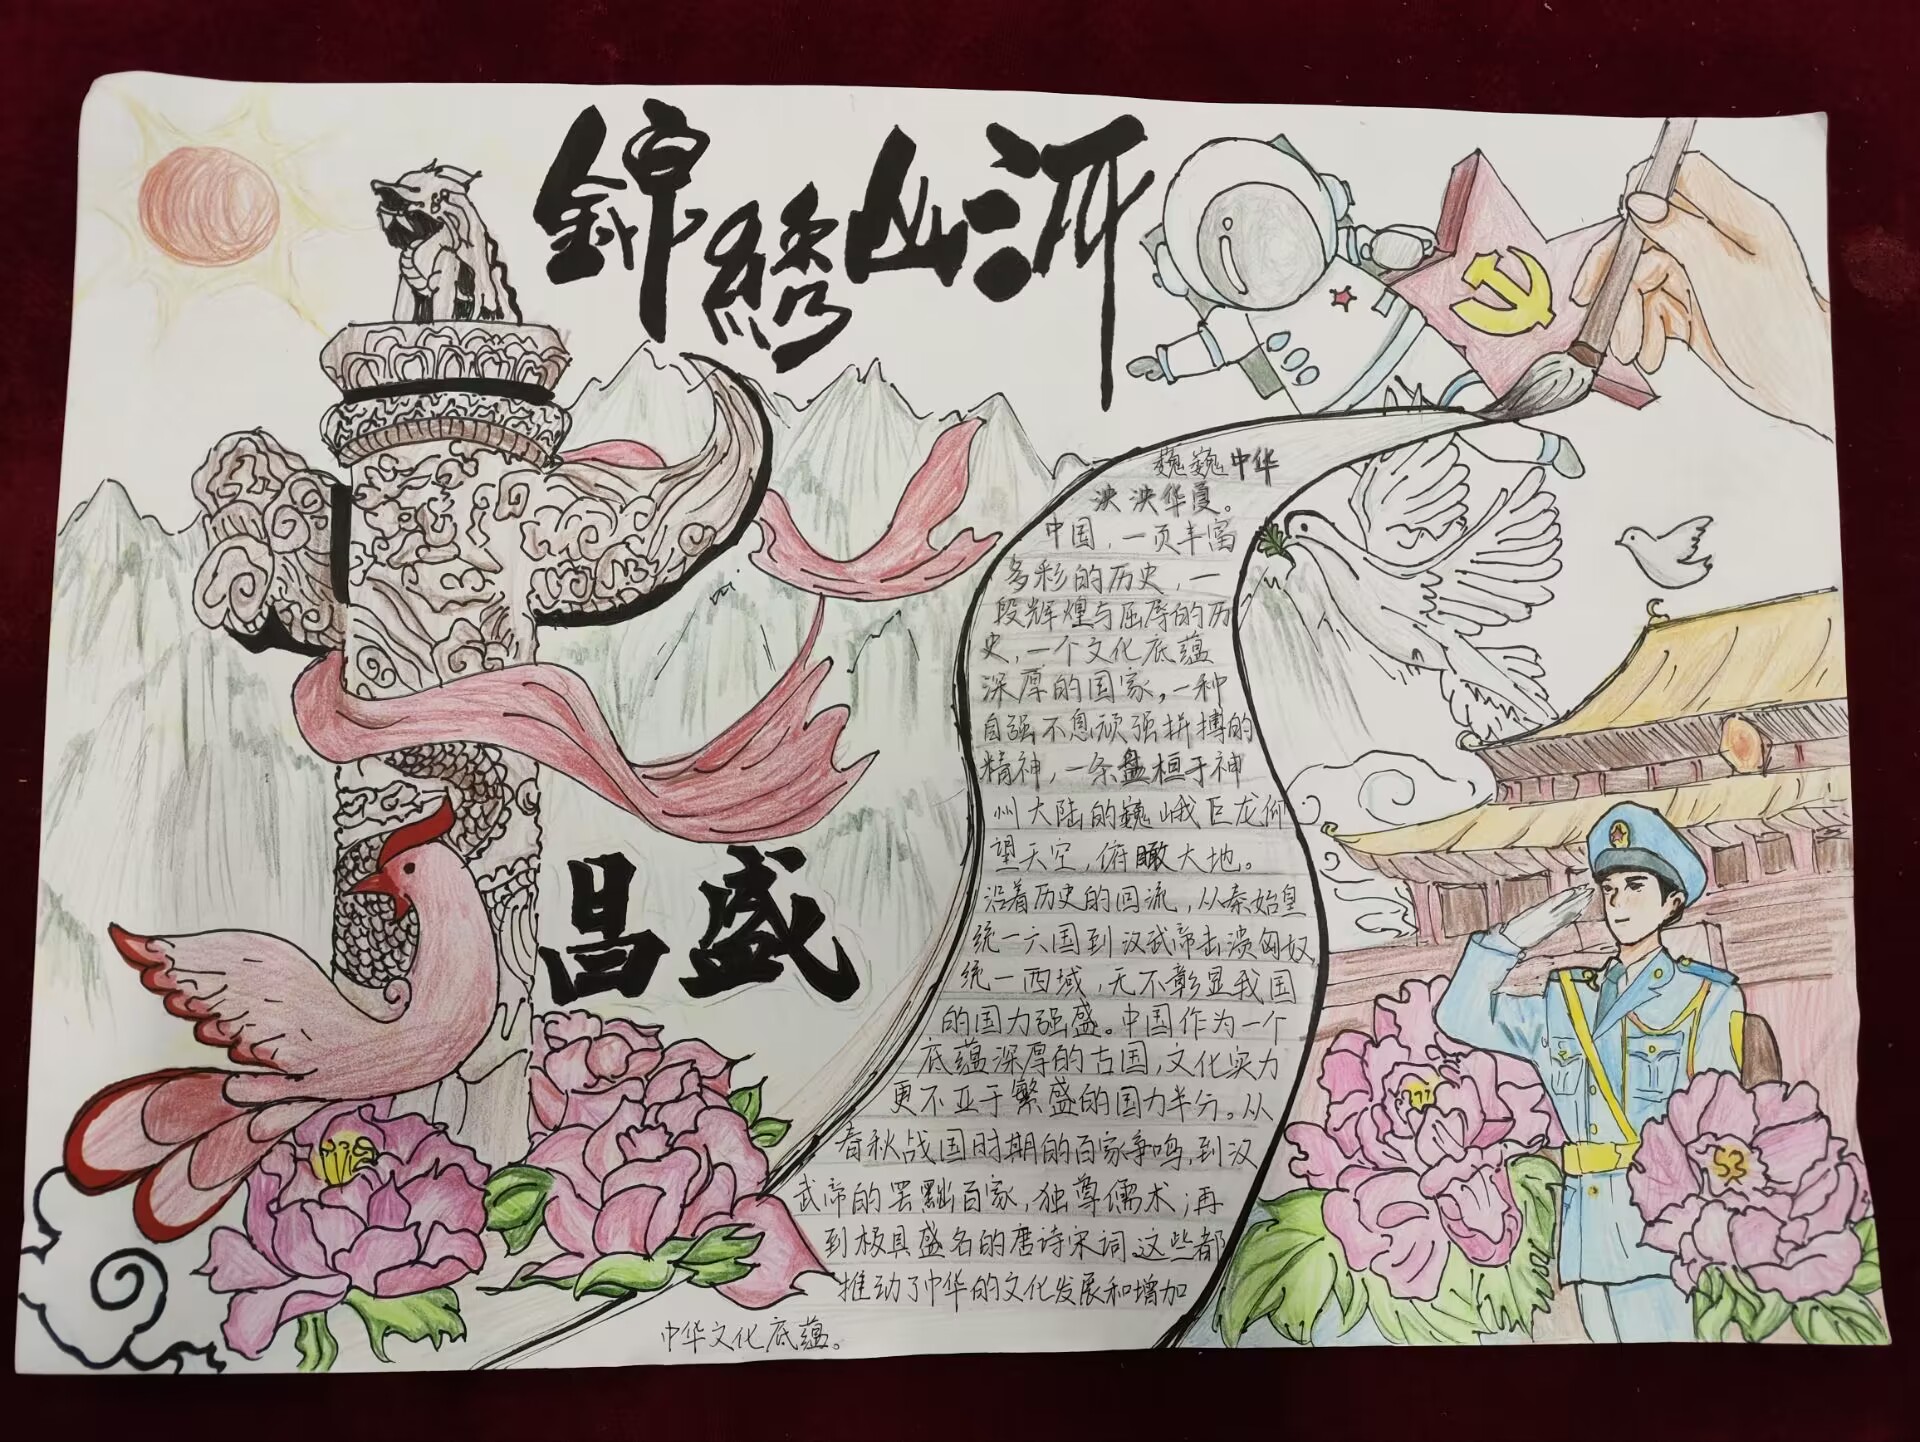 錦绣山河
昌盛
巍巍中华
泱泱华夏。
中国，一页丰富
多彩的历史，一
段辉煌与屈辱的历
史，一个文化底蕴
深厚的国家，一种
自强不息顽强拼搏的
精神，一条盘桓于神
州大陆的巍峨巨龙仰
望天空，俯瞰大地。
沿着历史的回流，从秦始皇
统一六国到汉武帝击溃匈奴
统一西域，无不彰显我国
的国力强盛。中国作为一个
底蕴深厚的古国，文化实力
更不亚于繁盛的国力半分。从
春秋战国时期的百家争鸣，到汉
武帝的罢黜百家，独尊儒术；再
到极具盛名的唐诗宋词，这些都
推动了中华的文化发展和增加
中华文化底蕴。